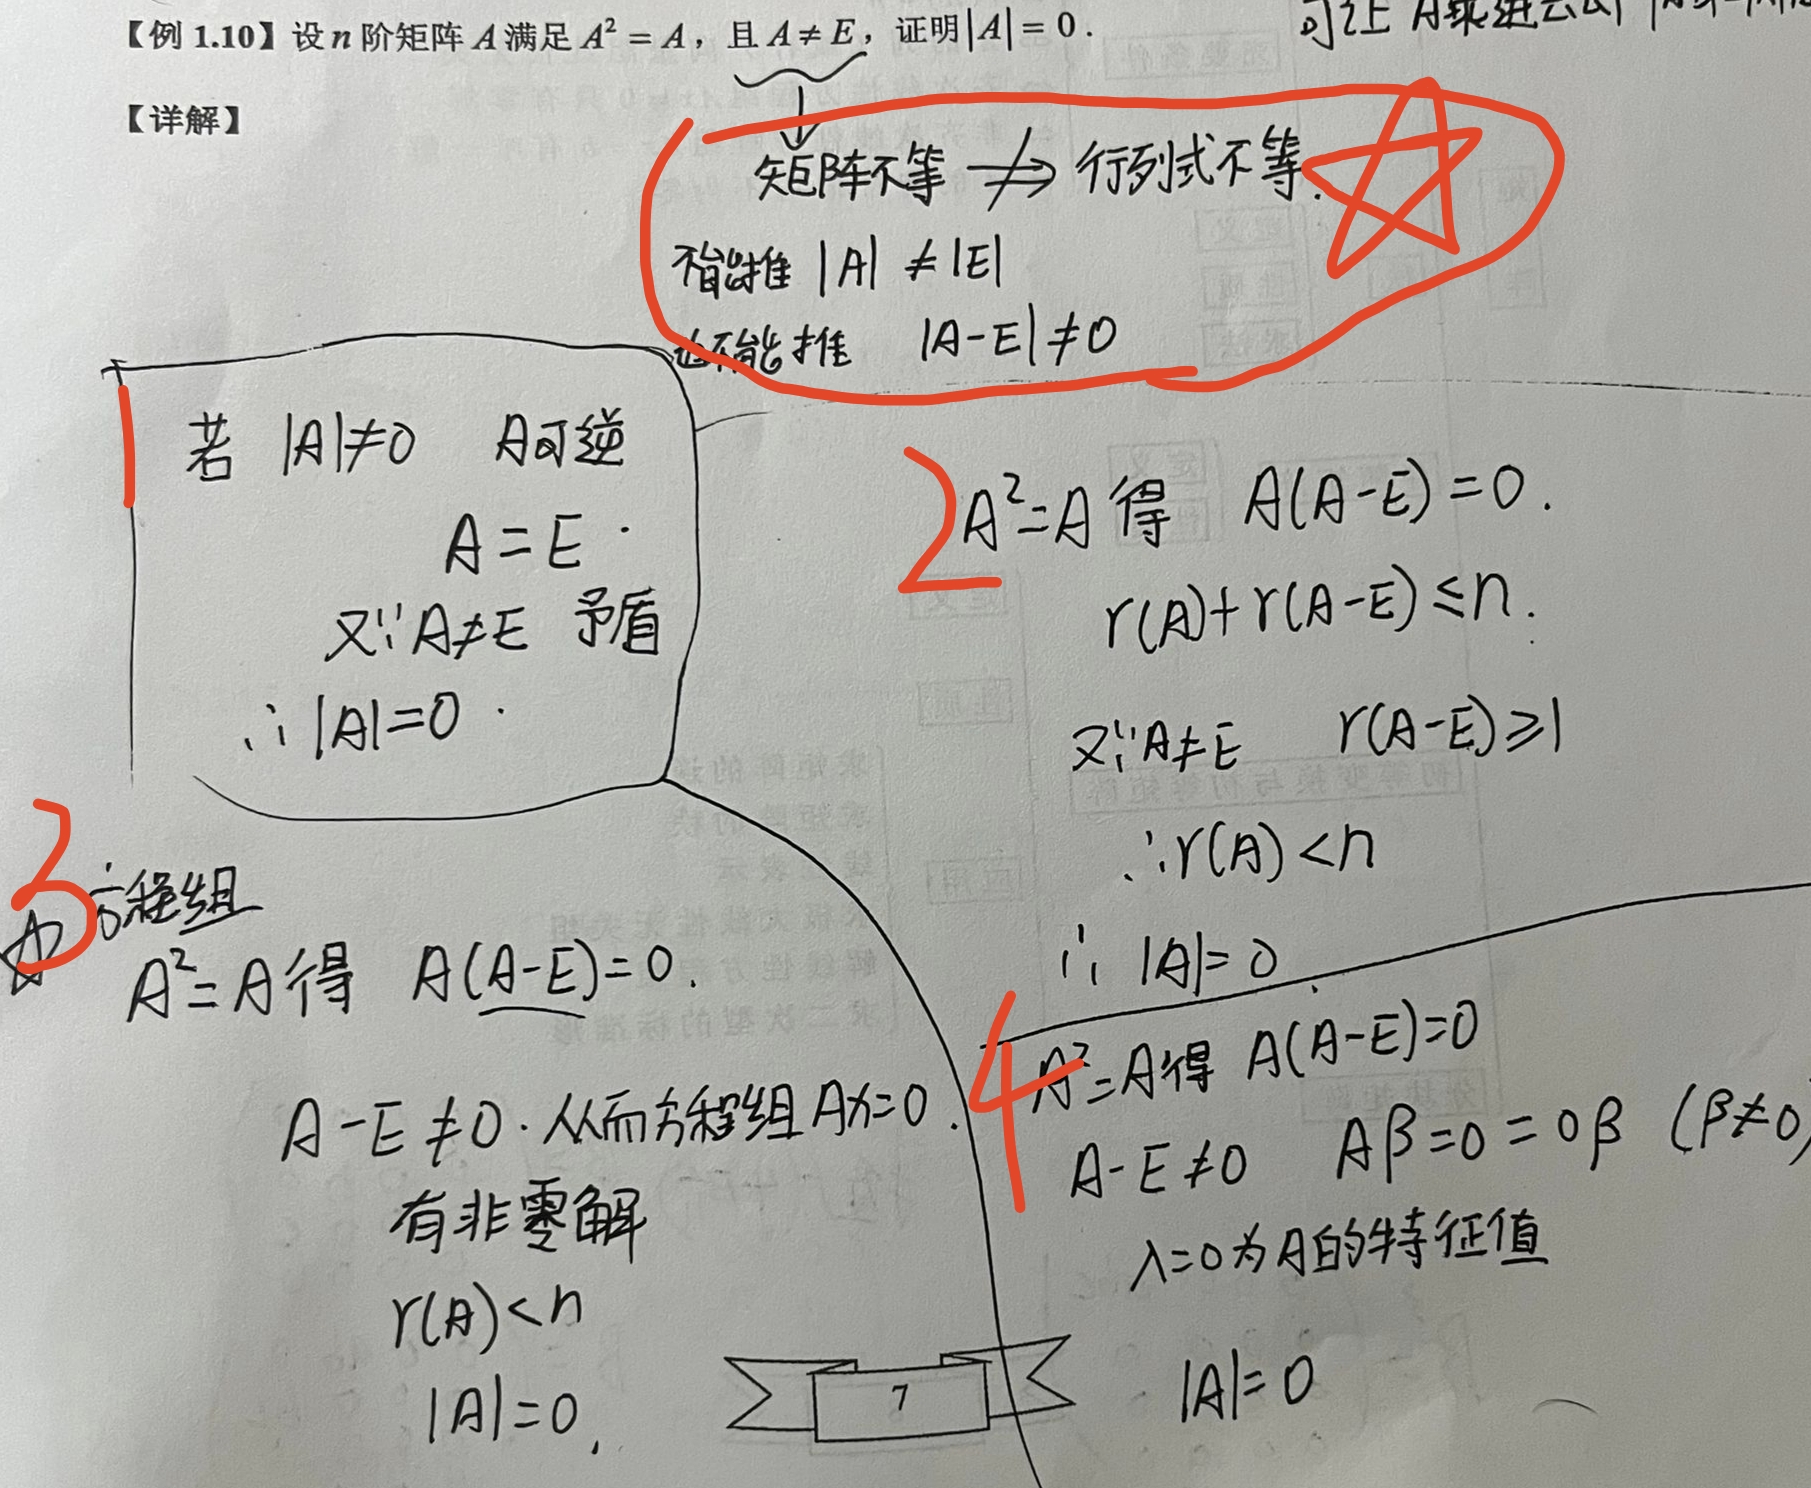 【例 1.10】设 n 阶矩阵 A 满足 A² = A，且 A ≠ E，证明|A| = 0．
【详解】
矩阵不等 ⇏ 行列式不等.
不能推 |A| ≠ |E|
也不能推 |A-E| ≠ 0
1
若 |A|≠0 A可逆
A = E .
又∵A≠E 矛盾
∴|A|=0 .
2
A²=A 得 A(A-E)=0.
r(A)+r(A-E)≤n.
又∵A≠E r(A-E)≥1
∴r(A)<n
∴|A|=0
3
方程组
A²=A得 A(A-E)=0.
A-E≠0. 从而方程组Ax=0.
有非零解
r(A)<n
|A|=0.
4
A²=A得 A(A-E)=0
A-E≠0 Aβ=0=0β (β≠0)
λ=0为A的特征值
|A|=0
7